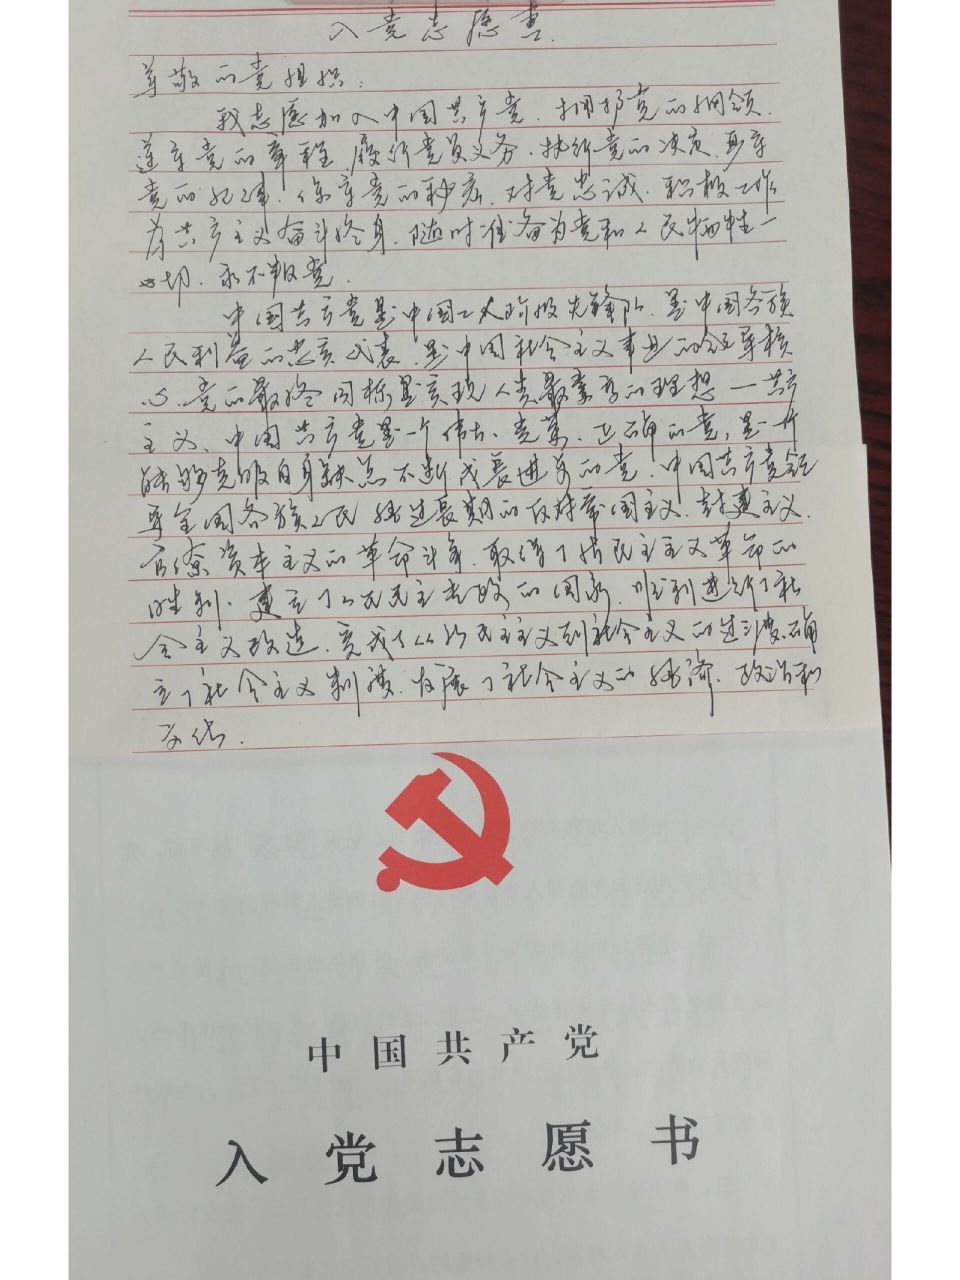 入党志愿书
尊敬的党组织：
我志愿加入中国共产党，拥护党的纲领，
遵守党的章程，履行党员义务，执行党的决定，严守
党的纪律，保守党的秘密，对党忠诚，积极工作
为共产主义奋斗终身，随时准备为党和人民牺牲一
切，永不叛党。
中国共产党是中国工人阶级先锋队，是中国各族
人民利益的忠实代表，是中国社会主义事业的领导核
心，党的最终目标是实现人类最崇高的理想—共产
主义，中国共产党是一个伟大、光荣、正确的党，是一个
能够克服自身缺点不断成长进步的党，中国共产党领
导全国各族人民经过长期的反对帝国主义、封建主义、
官僚资本主义的革命斗争，取得了新民主主义革命的
胜利，建立了人民民主专政的国家，顺利进行了社
会主义改造，完成了从新民主主义到社会主义的过渡，确
立了社会主义制度，发展了社会主义的经济、政治和
文化。
中国共产党
入党志愿书